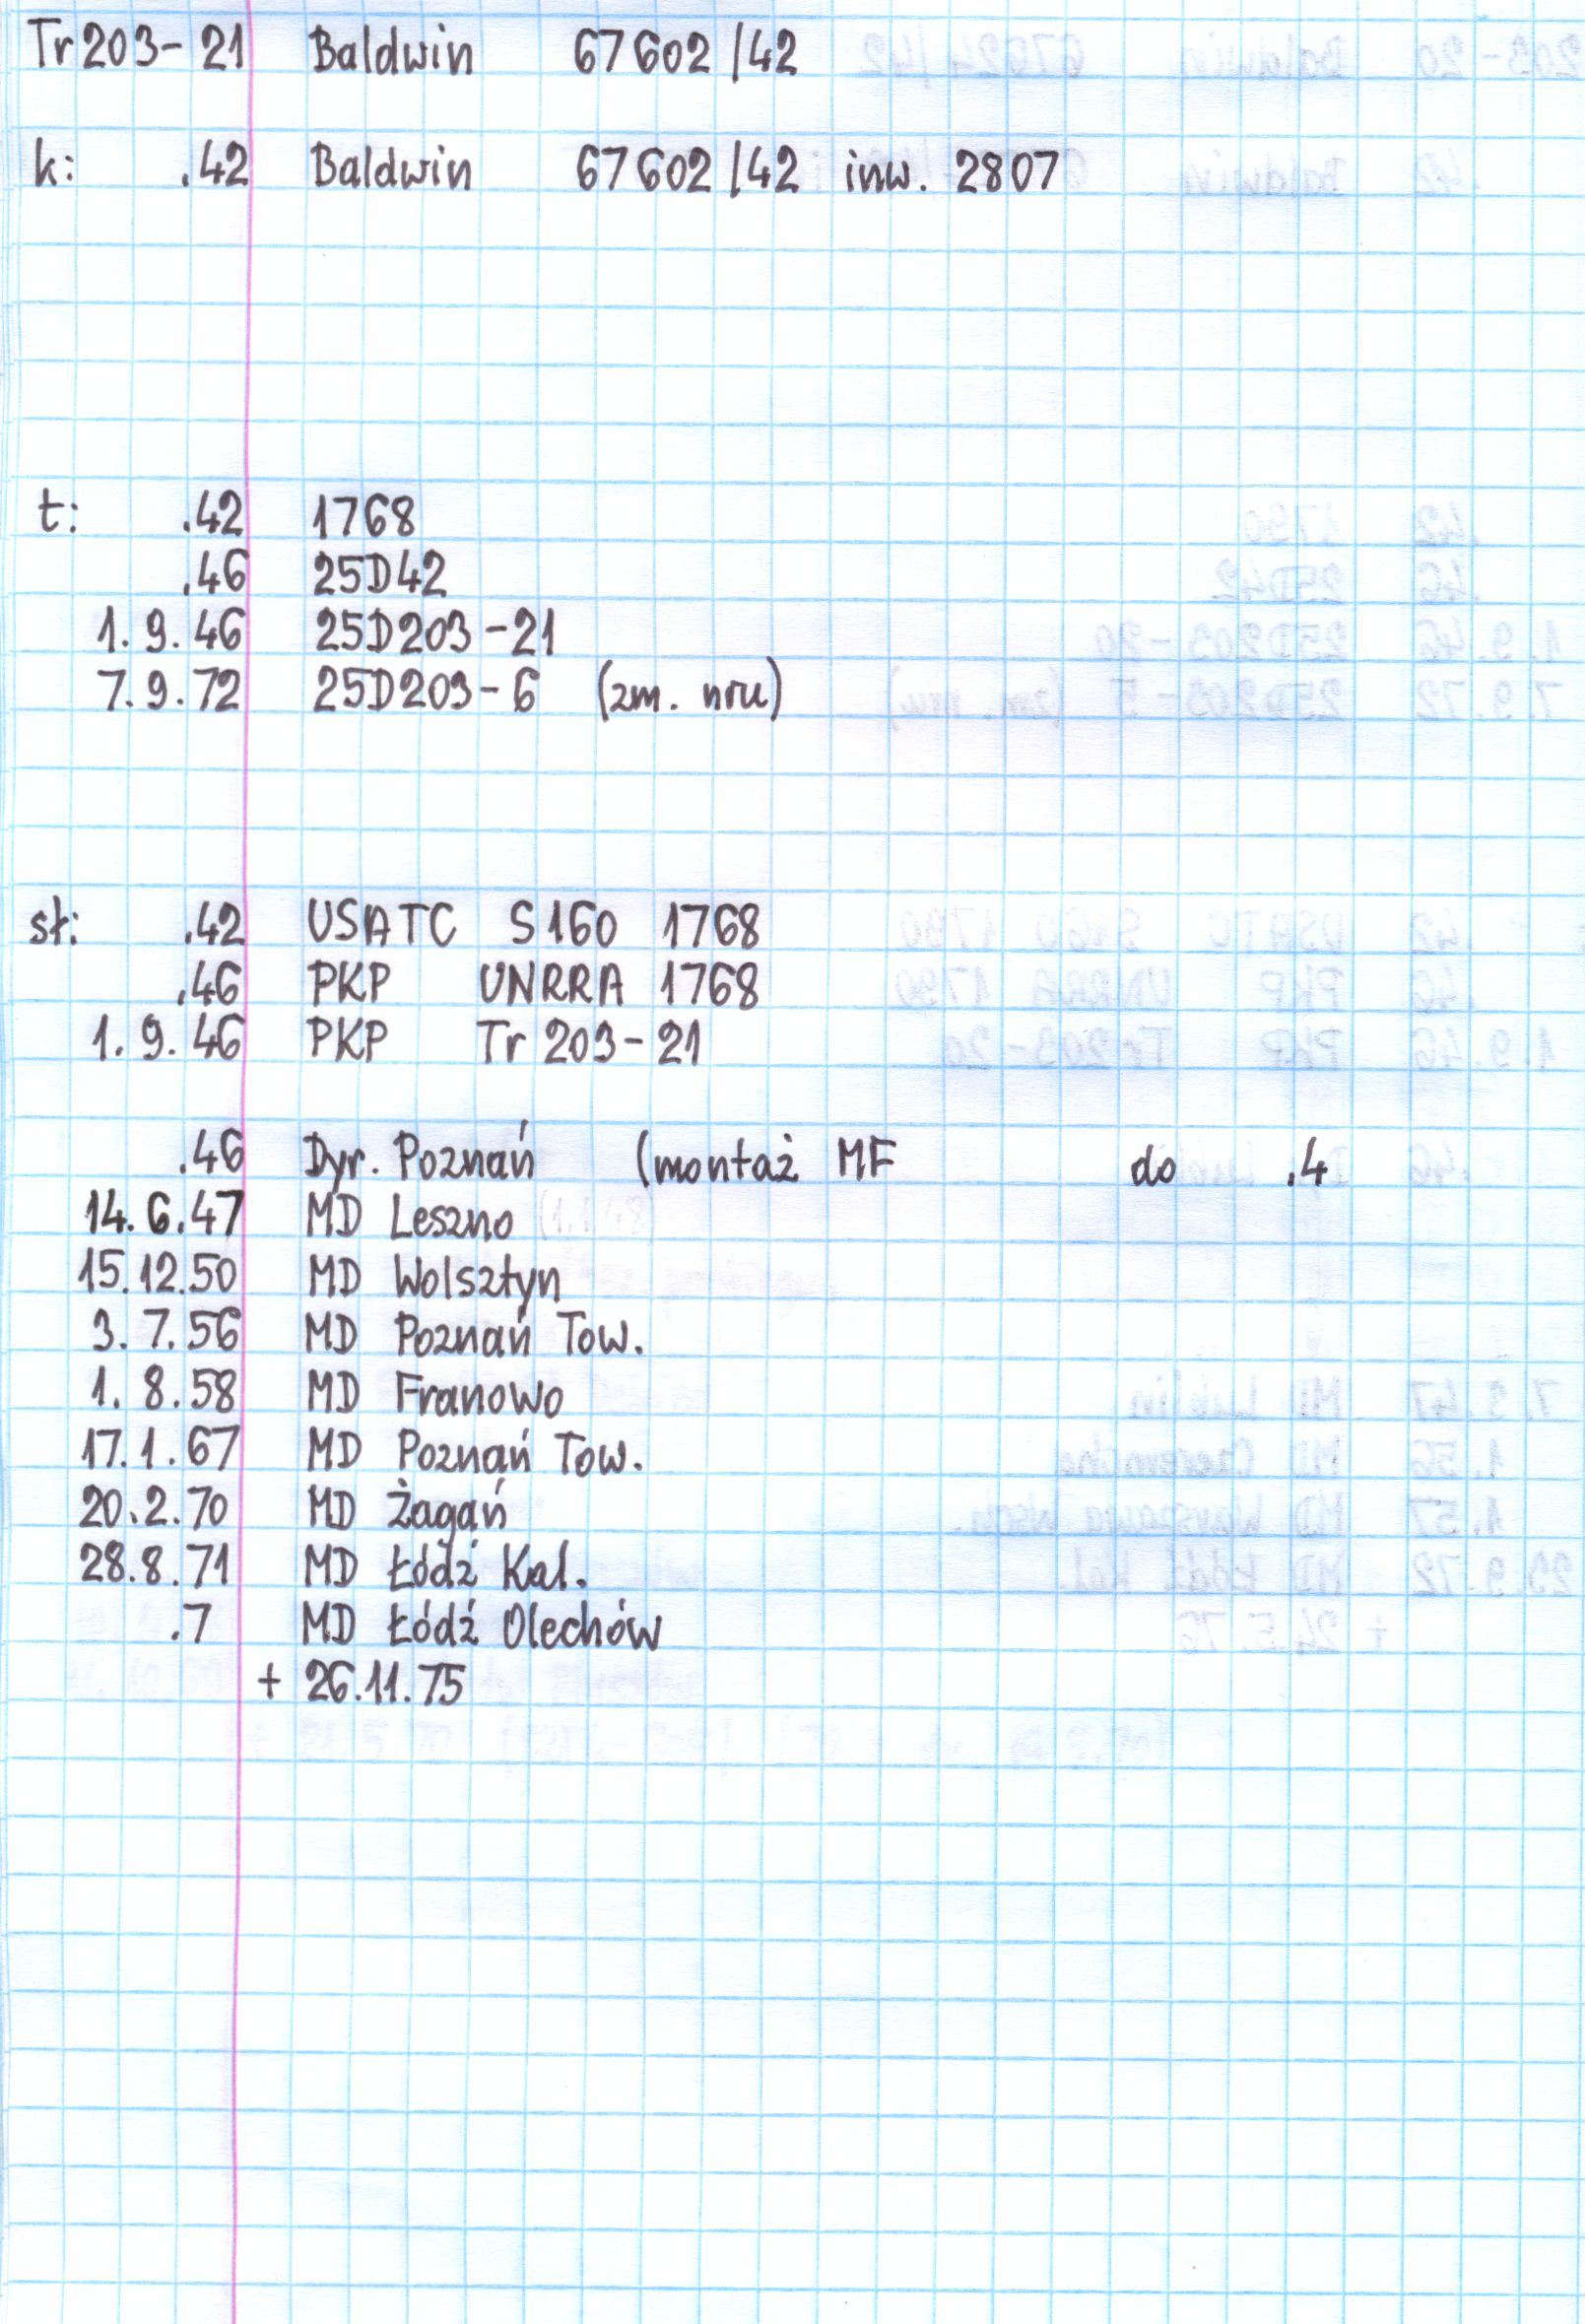 Tr 203-21 Baldwin 67602/42
k: .42 Baldwin 67602/42 inw. 2807
t: .42 1768
.46 25D42
1.9.46 25D203-21
7.9.72 25D203-6 (zm. nru)
sł: .42 USATC S160 1768
.46 PKP UNRRA 1768
1.9.46 PKP Tr 203-21
.46 Dyr. Poznań (montaż MF do .4
14.6.47 MD Leszno
15.12.50 MD Wolsztyn
3.7.56 MD Poznań Tow.
1.8.58 MD Franowo
17.1.67 MD Poznań Tow.
20.2.70 MD Żagań
28.8.71 MD Łódź Kal.
.7 MD Łódź Olechów
+ 26.11.75